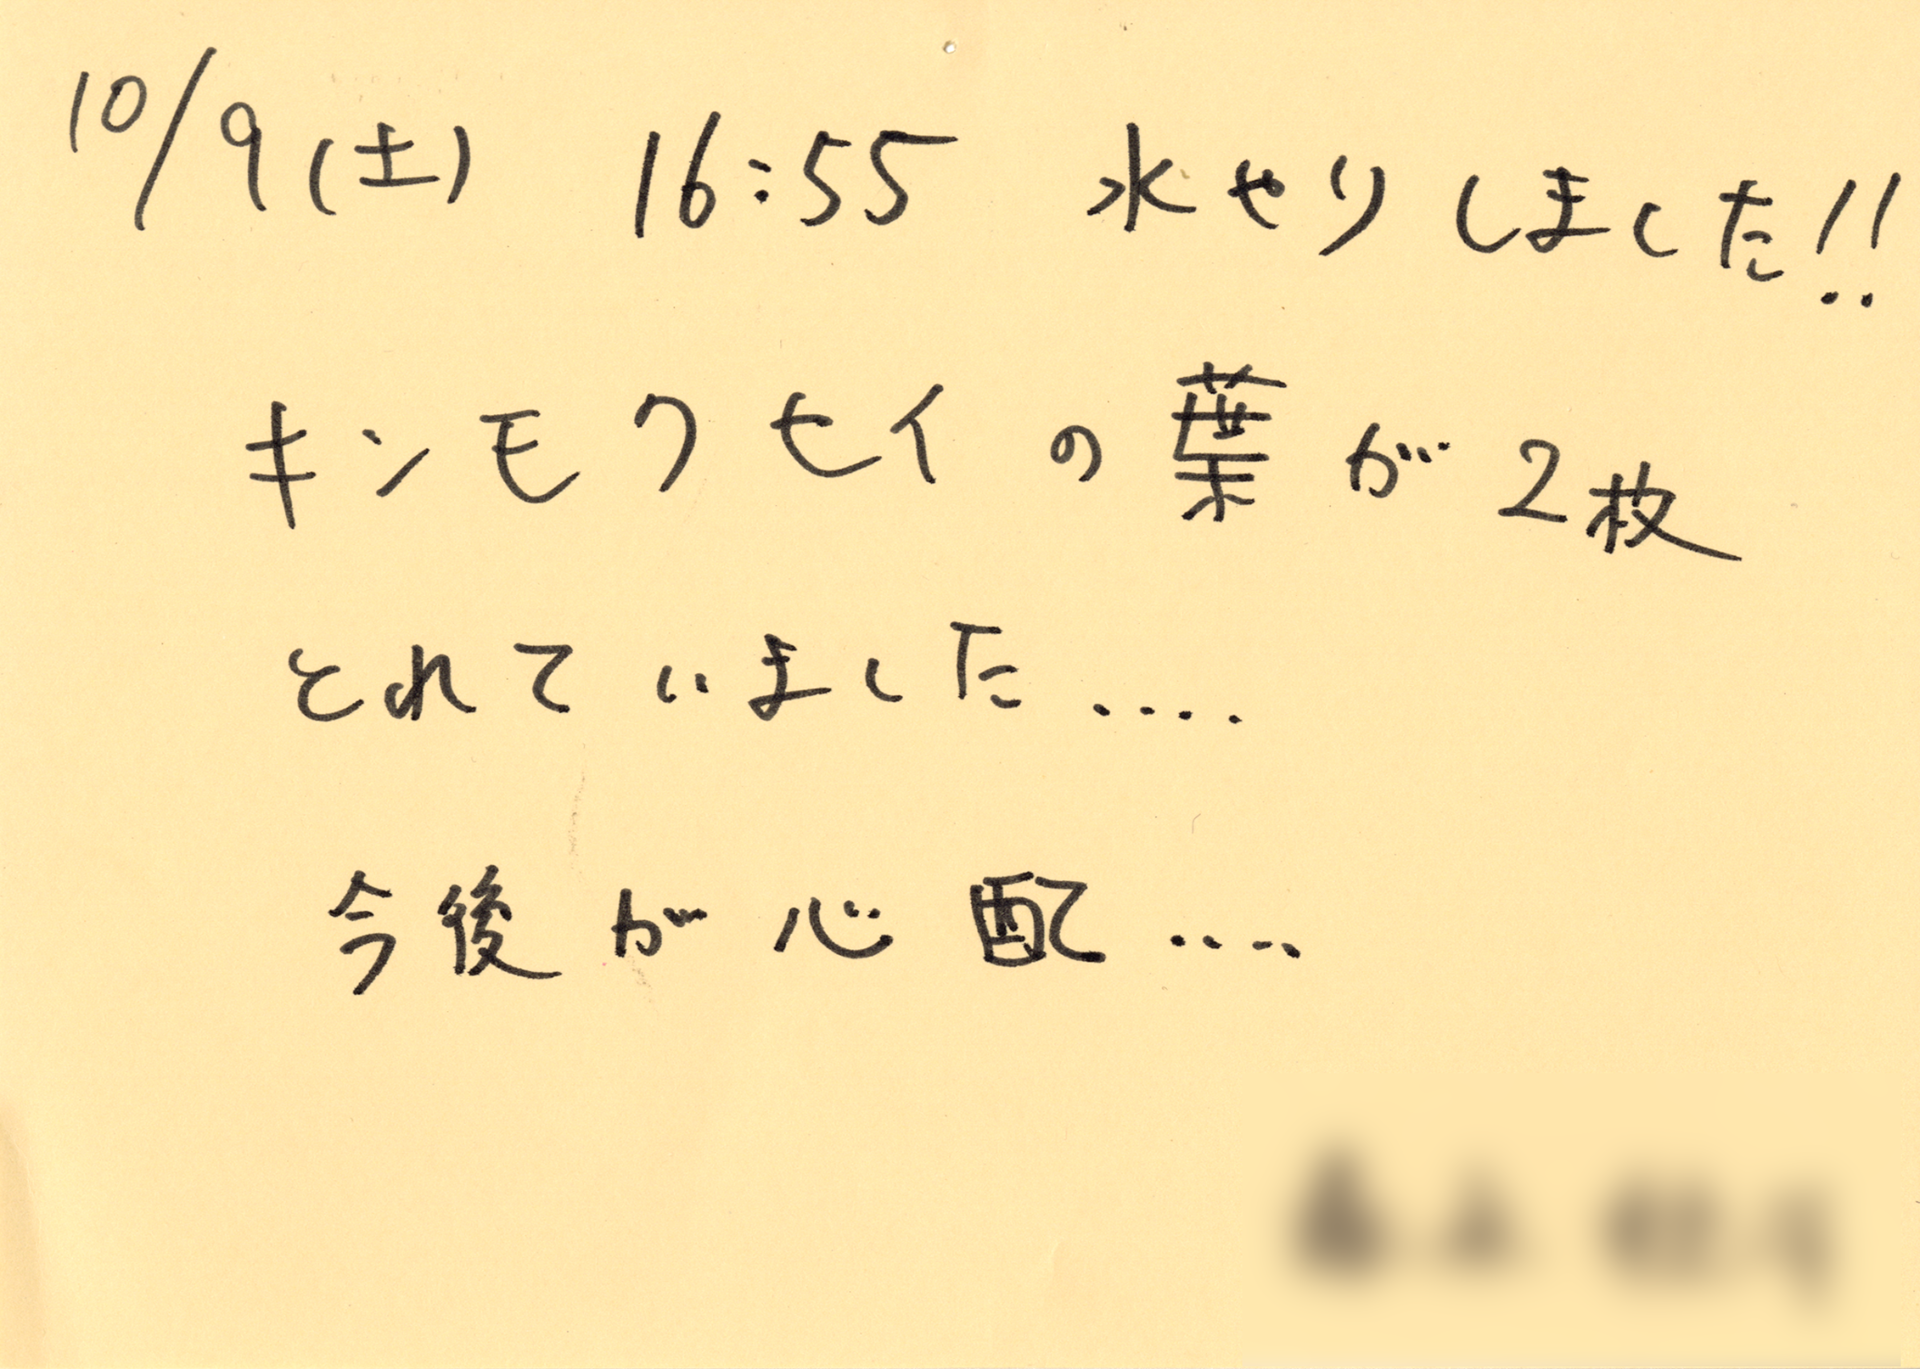 10/9(土) 16:55 水やりしました!!
キンモクセイの葉が2枚
とれていました....
今後が心配....